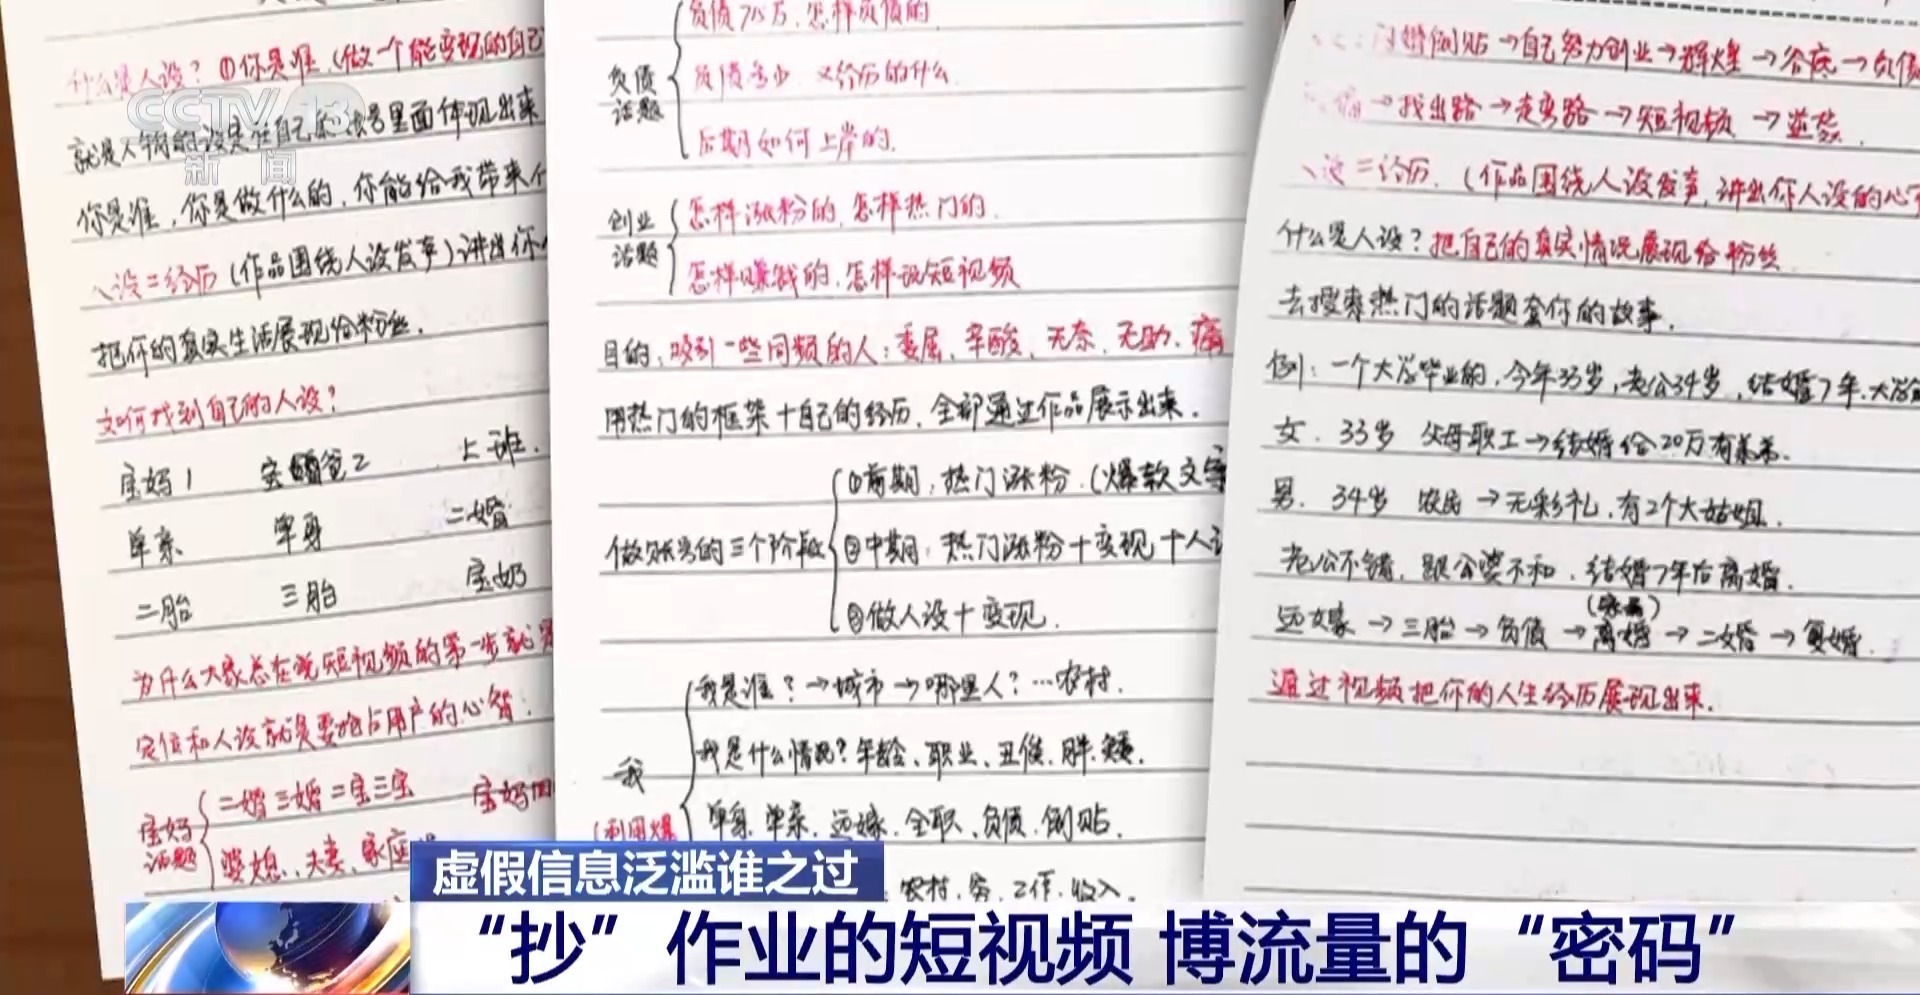 什么是人设？①你是谁.(做一个能变现的自己
就是人物的设定在自己的账号里面体现出来
你是谁，你是做什么的，你能给我带来什
人设=经历(作品围绕人设发声)讲出你
把你的真实生活展现给粉丝.
如何找到自己的人设？
宝妈1 宝爸2 上班.
单亲 单身 二婚
二胎 三胎 宝奶
为什么大家总在说短视频的第一步就是
定位和人设就是要抢占用户的心智:
宝妈话题
二婚 三婚 二宝三宝 宝妈
婆媳、夫妻、家庭
负债话题
负债715万.怎样负债的
负债多少.又经历的什么.
后期如何上岸的.
创业话题
怎样涨粉的.怎样热门的.
怎样赚钱的.怎样说短视频
目的：吸引一些同频的人：委屈、辛酸、无奈、无助、痛
用热门的框架+自己的经历.全部通过作品展示出来.
做账号的三个阶段
①前期：热门涨粉.(爆款文案
②中期：热门涨粉+变现+人设
③做人设+变现.
我
我是谁？→城市→哪里人？…农村.
我是什么情况？年龄、职业、丑俊、胖、矮.
单身.单亲.远嫁.全职、负债.倒贴.
(利用爆
农村.务.工作.收入.
闪婚倒贴→自己努力创业→辉煌→谷底→负债
→找出路→走弯路→短视频→逆袭.
人设=经历.(作品围绕人设发声，讲出你人设的心
什么是人设？把自己的真实情况展现给粉丝
去搜索热门的话题套你的故事.
例：一个大学毕业的，今年33岁，老公34岁，结婚7年.大学
女.33岁 父母职工→结婚给20万有弟弟.
男.34岁 农民→无彩礼.有2个大姑姐.
老公不错，跟公婆不和.结婚7年后离婚.
远嫁→三胎→负债→离婚→二婚→复婚.
通过视频把你的人生经历展现出来.
CCTV 13
新闻
虚假信息泛滥谁之过
“抄”作业的短视频 博流量的“密码”